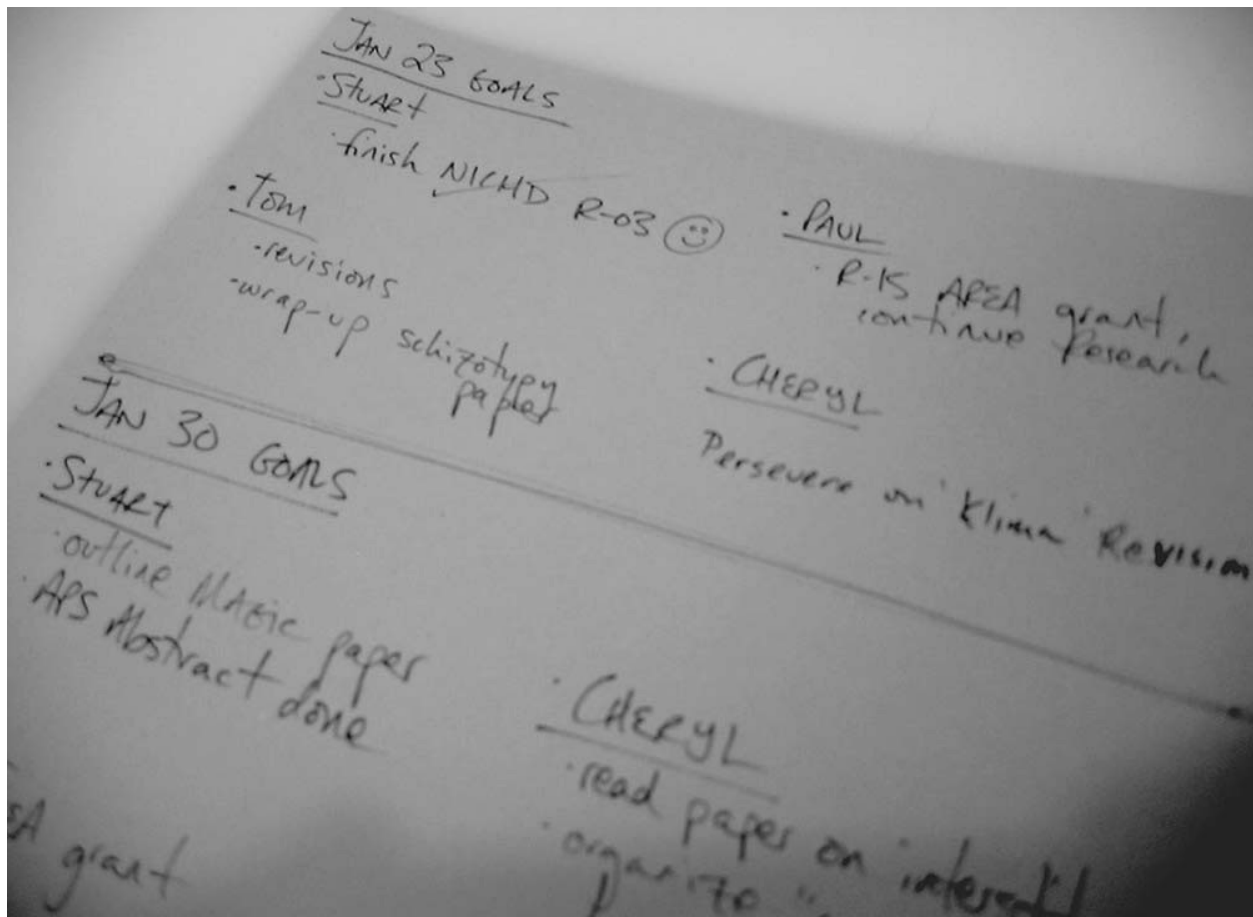 JAN 23 GOALS
· Stuart
· finish NICHD R-03
· Tom
· revisions
· wrap-up schizotypy
paper
· PAUL
· R-15 AREA grant,
continue Research
· CHERYL
Persevere on 'Klima' Revision
JAN 30 GOALS
· Stuart
· outline MAGIC paper
· APS Abstract done
grant
· CHERYL
· read paper on
· organize "